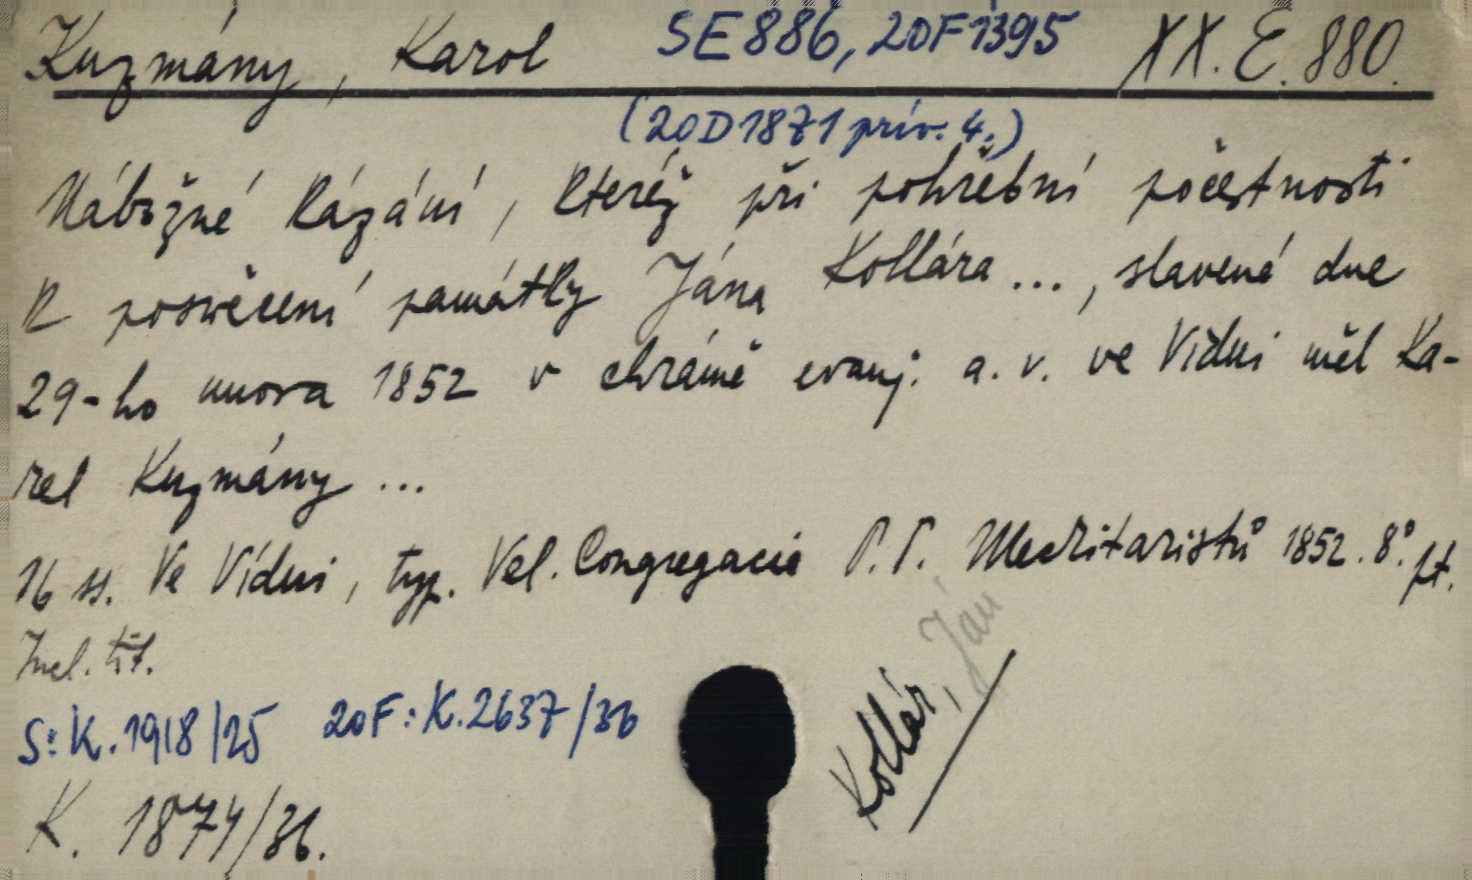 Kuzmány, Karol SE 886, 20F1395 XX. E. 880.
(20D1871 prív. 4.)
Nábožné kázání, kteréž při pohřební počestnosti
k posvěcení památky Jána Kollára ..., slavené dne
29-ho unora 1852 v chrámě evanj. a. v. ve Vídni měl Ka-
rel Kuzmány ...
16 ss. Ve Vídni, typ. Vel. Congregacie P. P. Mechitaristů 1852. 8°. pt.
Incl. tit.
S: K. 1918/25 20F: K. 2637/36
K. 1874/36.
Kollár, Ján